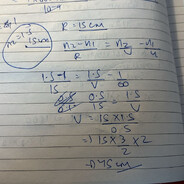 n=1.5
15cm
R = 15cm
n2-n1/R = n2/v - n1/u
1.5-1/15 = 1.5/v - 1/∞
0.5/15 = 1.5/v
V = 15x1.5/0.5
= 15x3x2/2
=) 45cm